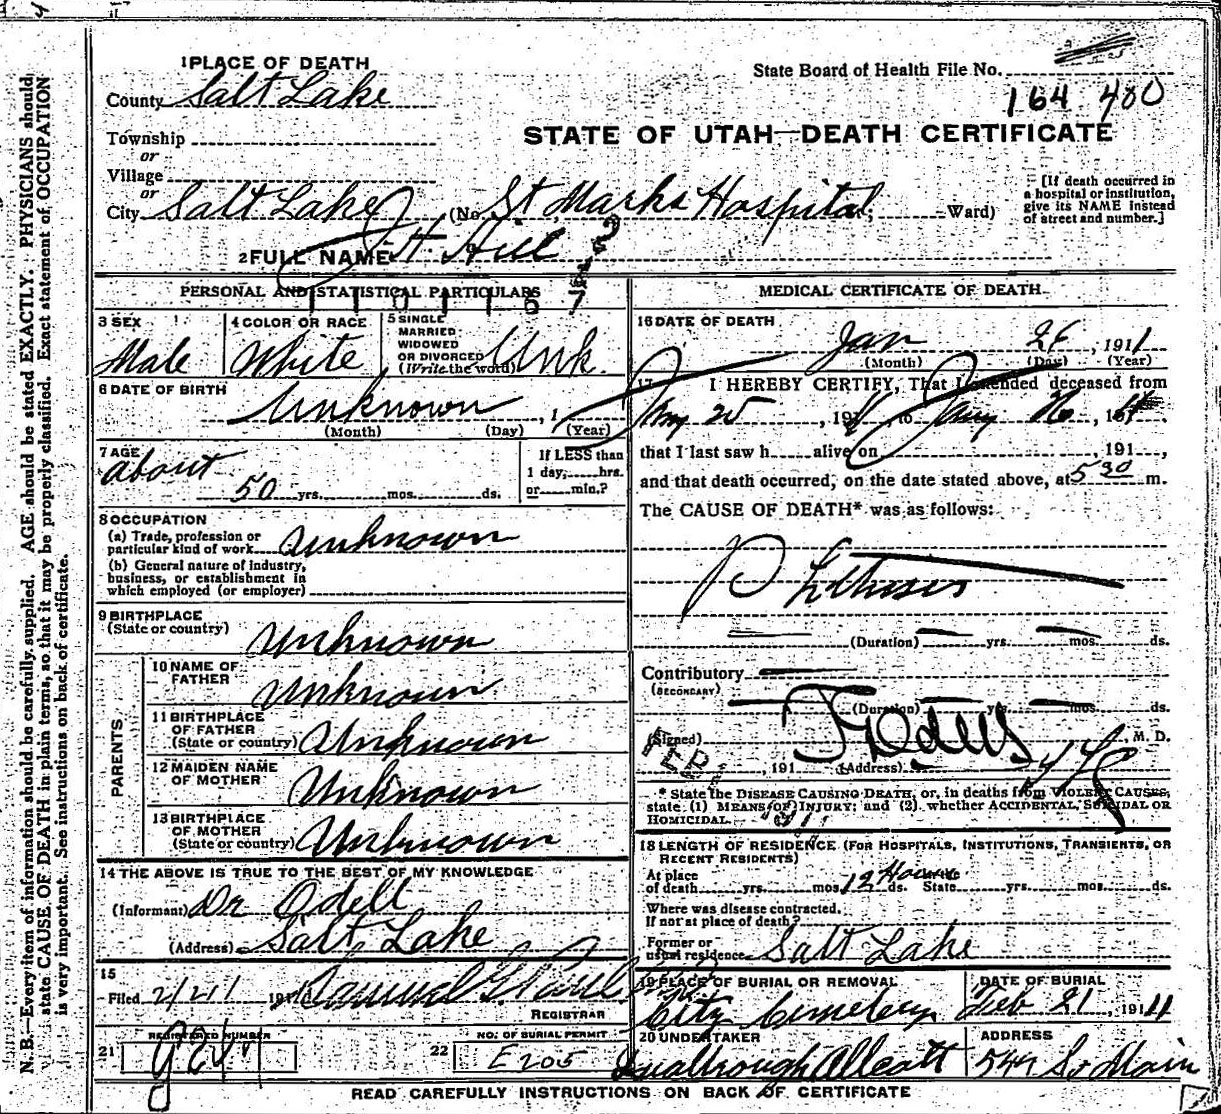 1 PLACE OF DEATH
County Salt Lake
State Board of Health File No.
164 400
Township
or
Village
or
City Salt Lake (No. St Marks Hospital, Ward)
STATE OF UTAH—DEATH CERTIFICATE
[If death occurred in
a hospital or institution,
give its NAME instead
of street and number.]
2 FULL NAME H. Hill
PERSONAL AND STATISTICAL PARTICULARS
3 SEX
Male
4 COLOR OR RACE
White
5 SINGLE
MARRIED
WIDOWED
OR DIVORCED
(Write the word) Unk.
6 DATE OF BIRTH
Unknown , 1
(Month) (Day) (Year)
7 AGE
about
50 yrs. mos. ds.
If LESS than
1 day, hrs.
or min.?
8 OCCUPATION
(a) Trade, profession or
particular kind of work Unknown
(b) General nature of industry,
business, or establishment in
which employed (or employer)
9 BIRTHPLACE
(State or country) Unknown
PARENTS
10 NAME OF
FATHER Unknown
11 BIRTHPLACE
OF FATHER
(State or country) Unknown
12 MAIDEN NAME
OF MOTHER Unknown
13 BIRTHPLACE
OF MOTHER
(State or country) Unknown
14 THE ABOVE IS TRUE TO THE BEST OF MY KNOWLEDGE
(Informant) Dr Odell
(Address) Salt Lake
15
Filed 2/21 191
REGISTRAR
REGISTERED NUMBER
21
22
NO. OF BURIAL PERMIT
E205
MEDICAL CERTIFICATE OF DEATH
16 DATE OF DEATH
Jan 26, 1911
(Month) (Day) (Year)
17 I HEREBY CERTIFY, That I attended deceased from
25 , 191 to Jany 26 , 1911
that I last saw h alive on , 191 ,
and that death occurred, on the date stated above, at 5 30 m.
The CAUSE OF DEATH* was as follows:
Phthisis
(Duration) yrs. mos. ds.
Contributory
(SECONDARY)
(Duration) yrs. mos. ds.
(Signed) Odell , M. D.
FEB , 191 (Address)
* State the DISEASE CAUSING DEATH, or, in deaths from VIOLENT CAUSES,
state (1) MEANS OF INJURY; and (2) whether ACCIDENTAL, SUICIDAL OR
HOMICIDAL.
18 LENGTH OF RESIDENCE (FOR HOSPITALS, INSTITUTIONS, TRANSIENTS, OR
RECENT RESIDENTS)
At place
of death yrs. mos. 12 Hours ds. State yrs. mos. ds.
Where was disease contracted,
If not at place of death?
Former or
usual residence Salt Lake
19 PLACE OF BURIAL OR REMOVAL
City Cemetery
DATE OF BURIAL
Feb 21, 1911
20 UNDERTAKER
ADDRESS
544 So Main
READ CAREFULLY INSTRUCTIONS ON BACK OF CERTIFICATE
N. B.—Every item of information should be carefully supplied. AGE should be stated EXACTLY. PHYSICIANS should
state CAUSE OF DEATH in plain terms, so that it may be properly classified. Exact statement of OCCUPATION
is very important. See instructions on back of certificate.